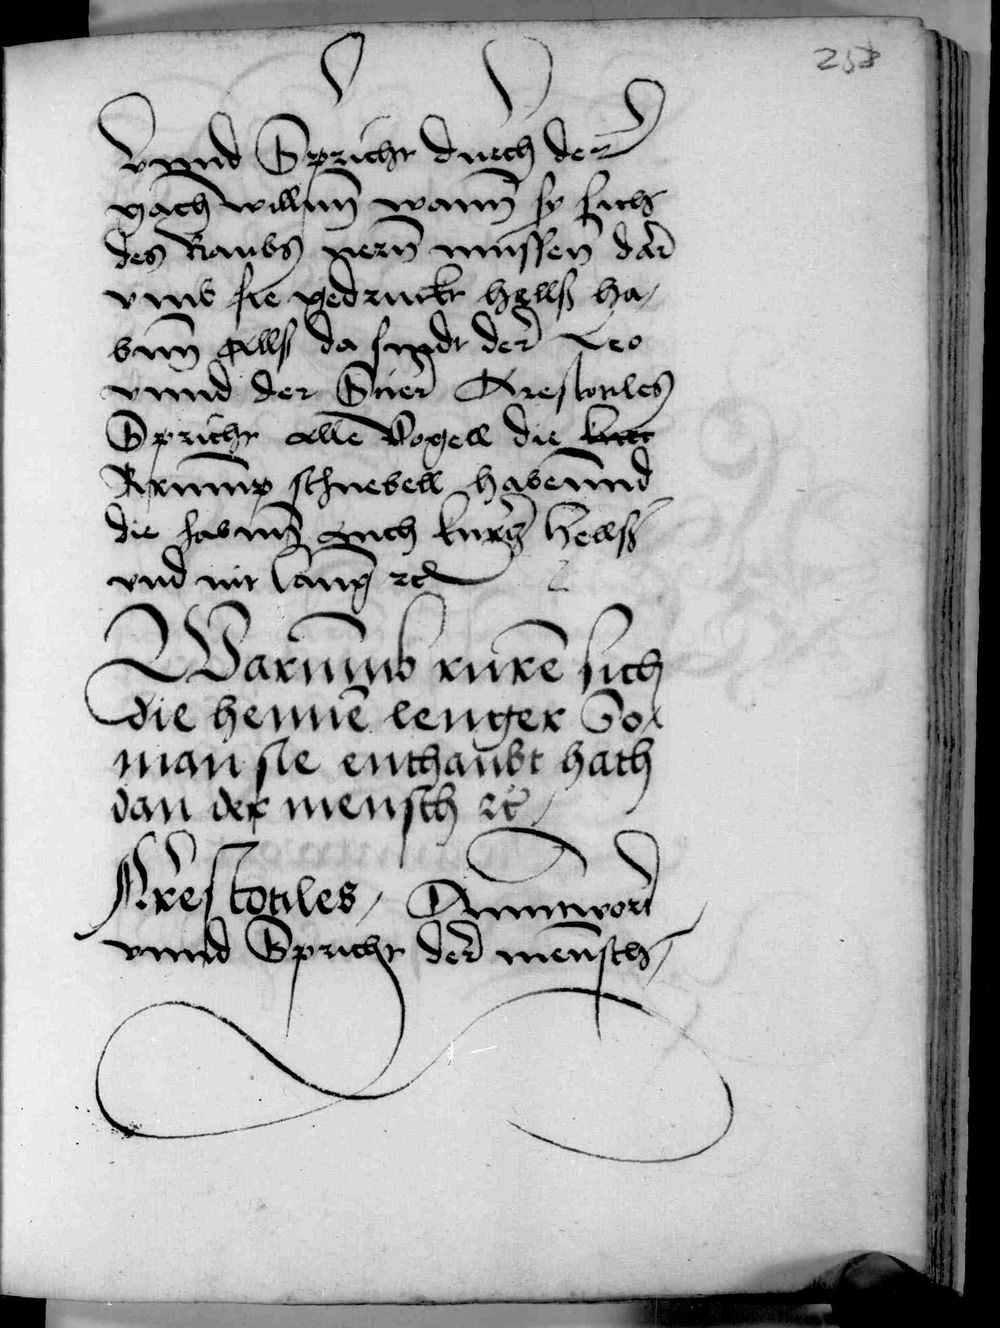 258
Vnnd Spricht durch der
nach willnn wann sy sich
des Raubs nern mussen dar
vmb sie gedruckt hellss ha/
bnn allss da sindt der Leo
vnnd der Stier Arestotiles
Spricht alle Vogell die kurtz
Krump schnebell habennd
die habnn auch kurtz hellss
vnd nit lang ꝛc
Warumb rüren sich
die hennē lenger So
man sie enthaubt hath
dan der mensch ꝛc /
Arestotiles / Anntwort
vnnd Spricht der mensch /